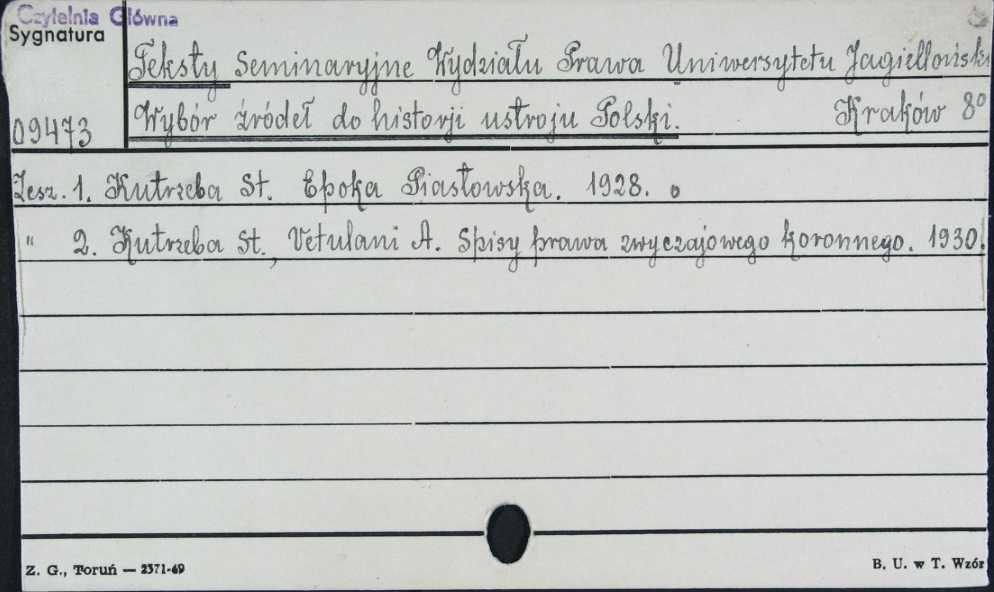 Czytelnia Główna
Sygnatura
Teksty Seminaryjne Wydziału Prawa Uniwersytetu Jagiellońsk
09473 Wybór źródeł do historji ustroju Polski. Kraków 8°
Zesz. 1. Kutrzeba St. Epoka Piastowska. 1928.
" 2. Kutrzeba St., Vetulani A. Spisy prawa zwyczajowego koronnego. 1930.
Z. G., Toruń — 2371-69
B. U. w T. Wzór